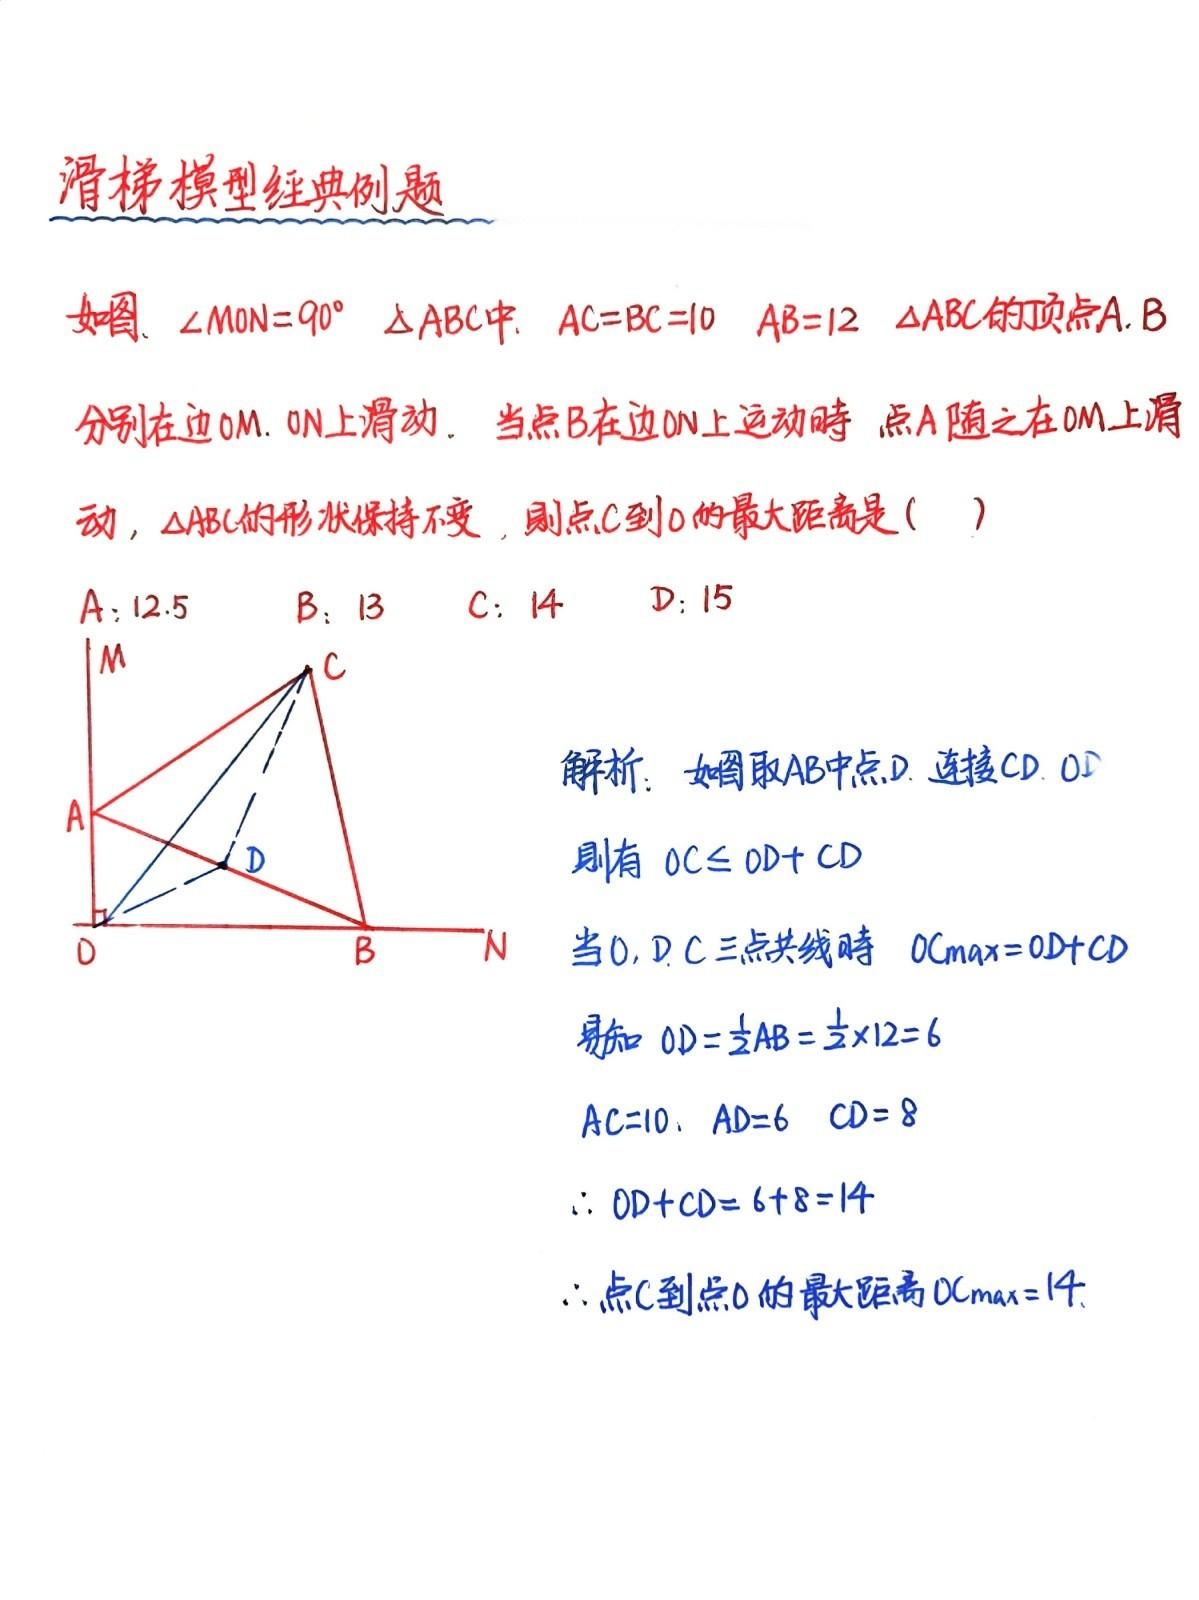 滑梯模型经典例题
如图、∠MON=90° △ABC中. AC=BC=10 AB=12 △ABC的顶点A.B
分别在边OM. ON上滑动. 当点B在边ON上运动时 点A随之在OM上滑
动, △ABC的形状保持不变, 则点C到O的最大距离是( )
A: 12.5 B: 13 C: 14 D: 15
M
C
A
D
O
B
N
解析: 如图取AB中点D. 连接CD. OD
则有 OC≤OD+CD
当O, D. C三点共线时 OCmax=OD+CD
易知 OD=½AB=½×12=6
AC=10. AD=6 CD=8
∴ OD+CD=6+8=14
∴点C到点O的最大距离OCmax=14.